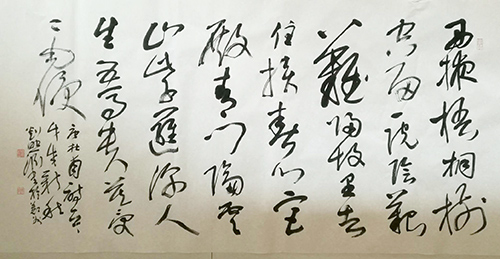 西掖梧桐樹
空留一院陰艱
難歸故里去
住損春心宫
殿青门隔雲
山紫邏深人
生五馬貴莫受
二毛侵
唐杜甫詩
牛年新秋